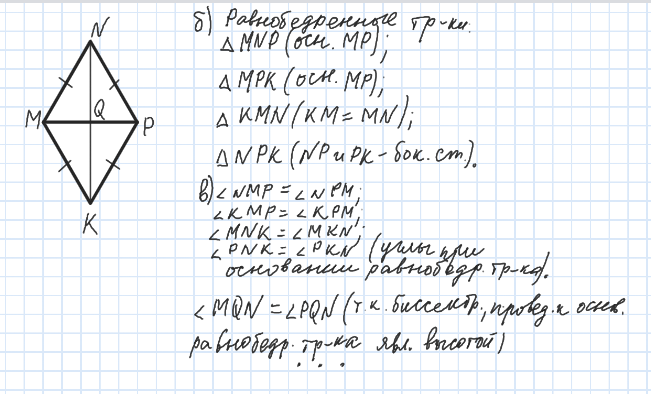 N
M
Q
P
K
б) Равнобедренные тр-ки.
△ MNP (осн. MP);
△ MPK (осн. MP);
△ KMN (KM = MN);
△ NPK (NP и PK - бок. ст.).
в) ∠NMP = ∠NPM;
∠KMP = ∠KPM;
∠MNK = ∠MKN;
∠PNK = ∠PKN (углы при
основании равнобедр. тр-ка).
∠MQN = ∠PQN (т.к. биссектр, провед. к основ.
равнобедр. тр-ка явл. высотой)
. . .